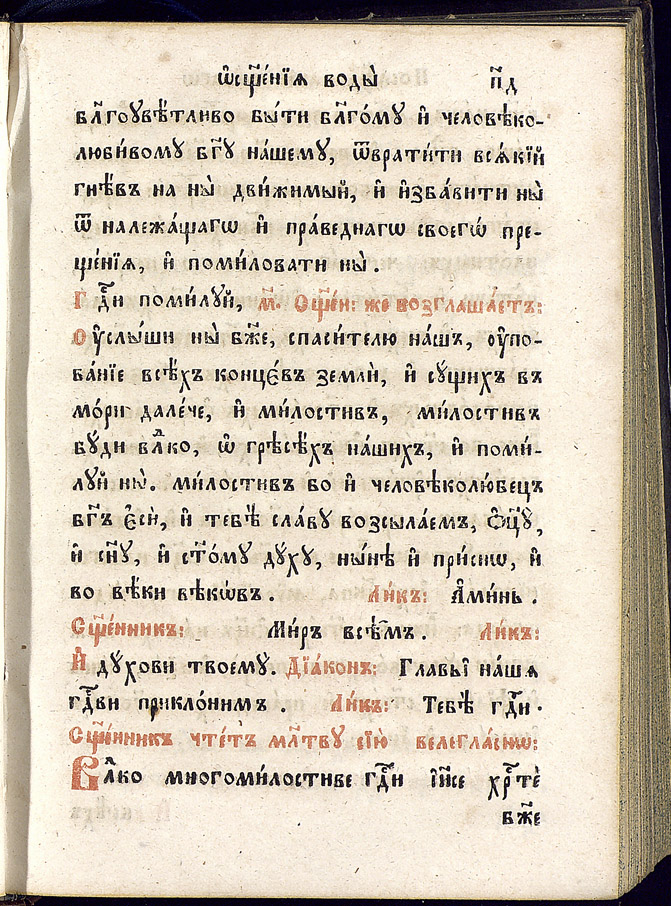 ѡ҆сщ҃е́нїѧ воды̀ п҃д
бл҃гоꙋвѣ́тливо бы́ти бл҃го́мꙋ и҆ человѣко-
люби́вомꙋ бг҃ꙋ на́шемꙋ, ѿврати́ти всѧ́кїй
гнѣ́въ на ны̀ дви́жимый, и҆ и҆зба́вити ны̀
ѿ належа́щагѡ и҆ пра́веднагѡ своегѡ̀ пре-
ще́нїѧ, и҆ поми́ловати ны̀.
Гдⷭ҇и поми́лꙋй, м҃. Ѻсщ҃е́н: же возглаша́етъ:
Оу҆слы́ши ны̀ бж҃е, спаси́телю на́шъ, ᲂу҆по-
ва́нїе всѣ́хъ концє́въ землѝ, и҆ сꙋ́щихъ въ
мо́ри дале́че, и҆ ми́лостивъ, ми́лостивъ
бꙋ́ди влⷣко, ѡ҆ грѣсѣ́хъ на́шихъ, и҆ поми́-
лꙋй ны̀. ми́лостивъ бо и҆ человѣколю́бецъ
бг҃ъ є҆сѝ, и҆ тебѣ̀ сла́вꙋ возсыла́емъ, ѻ҆ц҃ꙋ̀,
и҆ сн҃ꙋ, и҆ ст҃о́мꙋ дꙋ́хꙋ, ны́нѣ и҆ при́снѡ, и҆
во вѣ́ки вѣкѡ́въ. Ли́къ: А҆ми́нь.
Сщ҃е́нникъ: Ми́ръ всѣ̑мъ. Ли́къ:
И҆ дꙋ́хови твоемꙋ̀. Дїа́конъ: Главы̑ на́шѧ
гдⷭ҇ви прикло́нимъ. Ли́къ: Тебѣ̀ гдⷭ҇и.
Сщ҃е́нникъ чте́тъ мл҃твꙋ сїю̀ велегла́снѡ:
Влⷣко многоми́лостиве гдⷭ҇и і҆и҃се хрⷭ҇тѐ
бж҃е